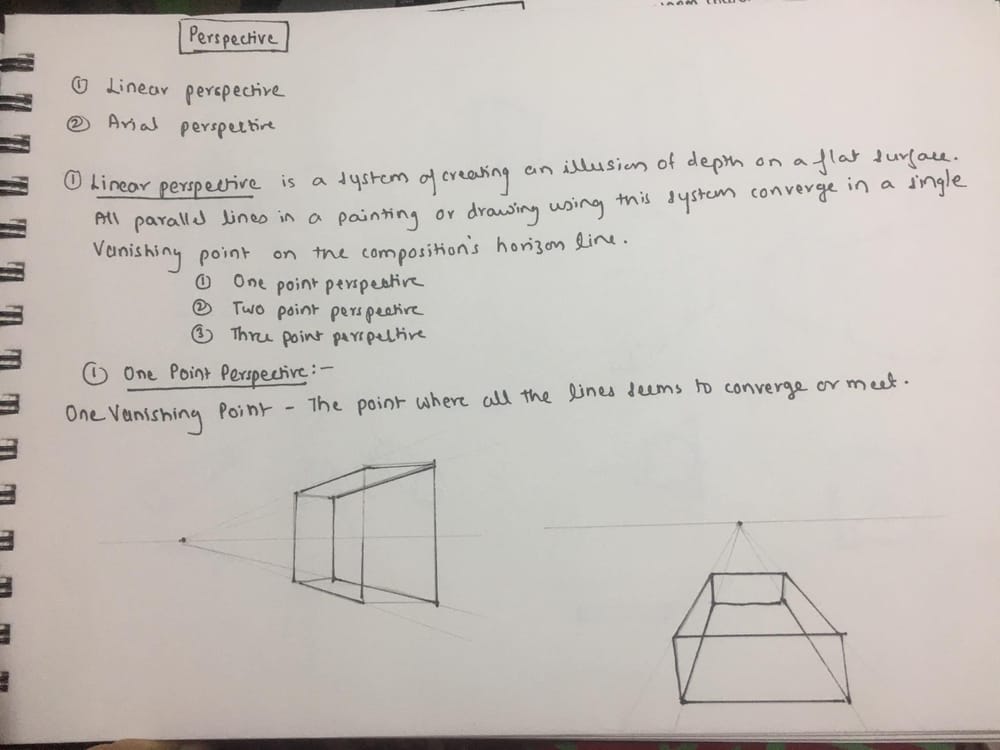 Perspective
① Linear perspective
② Arial perspective
① Linear perspective is a system of creating an illusion of depth on a flat surface.
All parallel lines in a painting or drawing using this system converge in a single
Vanishing point on the composition's horizon line.
① One point perspective
② Two point perspective
③ Three point perspective
① One Point Perspective:-
One Vanishing Point - The point where all the lines seems to converge or meet.